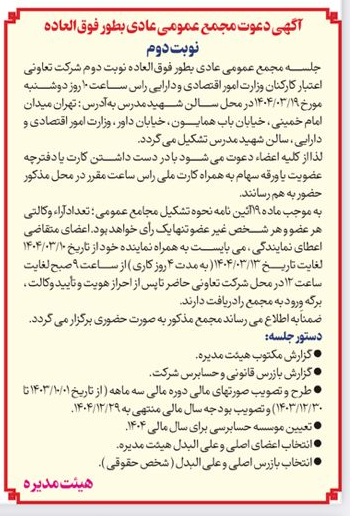 آگهی دعوت مجمع عمومی عادی بطور فوق العاده
نوبت دوم
جلسه مجمع عمومی عادی بطور فوق العاده نوبت دوم شرکت تعاونی
اعتبار کارکنان وزارت امور اقتصادی و دارایی راس ساعت ۱۰ روز دوشنبه
مورخ ۱۴۰۴/۰۳/۱۹ در محل سالن شهید مدرس به آدرس : تهران میدان
امام خمینی ، خیابان باب همایون ، خیابان داور ، وزارت امور اقتصادی و
دارایی ، سالن شهید مدرس تشکیل می گردد.
لذا از کلیه اعضاء دعوت می شود با در دست داشتن کارت یا دفترچه
عضویت یا ورقه سهام به همراه کارت ملی راس ساعت مقرر در محل مذکور
حضور به هم رسانند.
به موجب ماده ۱۹ آئین نامه نحوه تشکیل مجامع عمومی ؛ تعداد آراء وکالتی
هر عضو و هر شخص غیر عضو تنها یک رأی خواهد بود. اعضای متقاضی
اعطای نمایندگی ، می بایست به همراه نماینده خود از تاریخ ۱۴۰۴/۰۳/۱۰
لغایت تاریخ ۱۴۰۴/۰۳/۱۳ ( به مدت ۴ روز کاری ) از ساعت ۹ صبح لغایت
ساعت ۱۲ در محل شرکت تعاونی حاضر تا پس از احراز هویت و تأیید وکالت ،
برگه ورود به مجمع را دریافت دارند.
ضمنا به اطلاع می رساند مجمع مذکور به صورت حضوری برگزار می گردد.
دستور جلسه:
● گزارش مکتوب هیئت مدیره.
● گزارش بازرس قانونی و حسابرس شرکت.
● طرح و تصویب صورتهای مالی دوره مالی سه ماهه ( از تاریخ ۱۴۰۳/۱۰/۰۱ تا
۱۴۰۳/۱۲/۳۰) و تصویب بودجه سال مالی منتهی به ۱۴۰۴/۱۲/۲۹.
● تعیین موسسه حسابرسی برای سال مالی ۱۴۰۴.
● انتخاب اعضای اصلی و علی البدل هیئت مدیره.
● انتخاب بازرس اصلی و علی البدل ( شخص حقوقی ).
هیئت مدیره